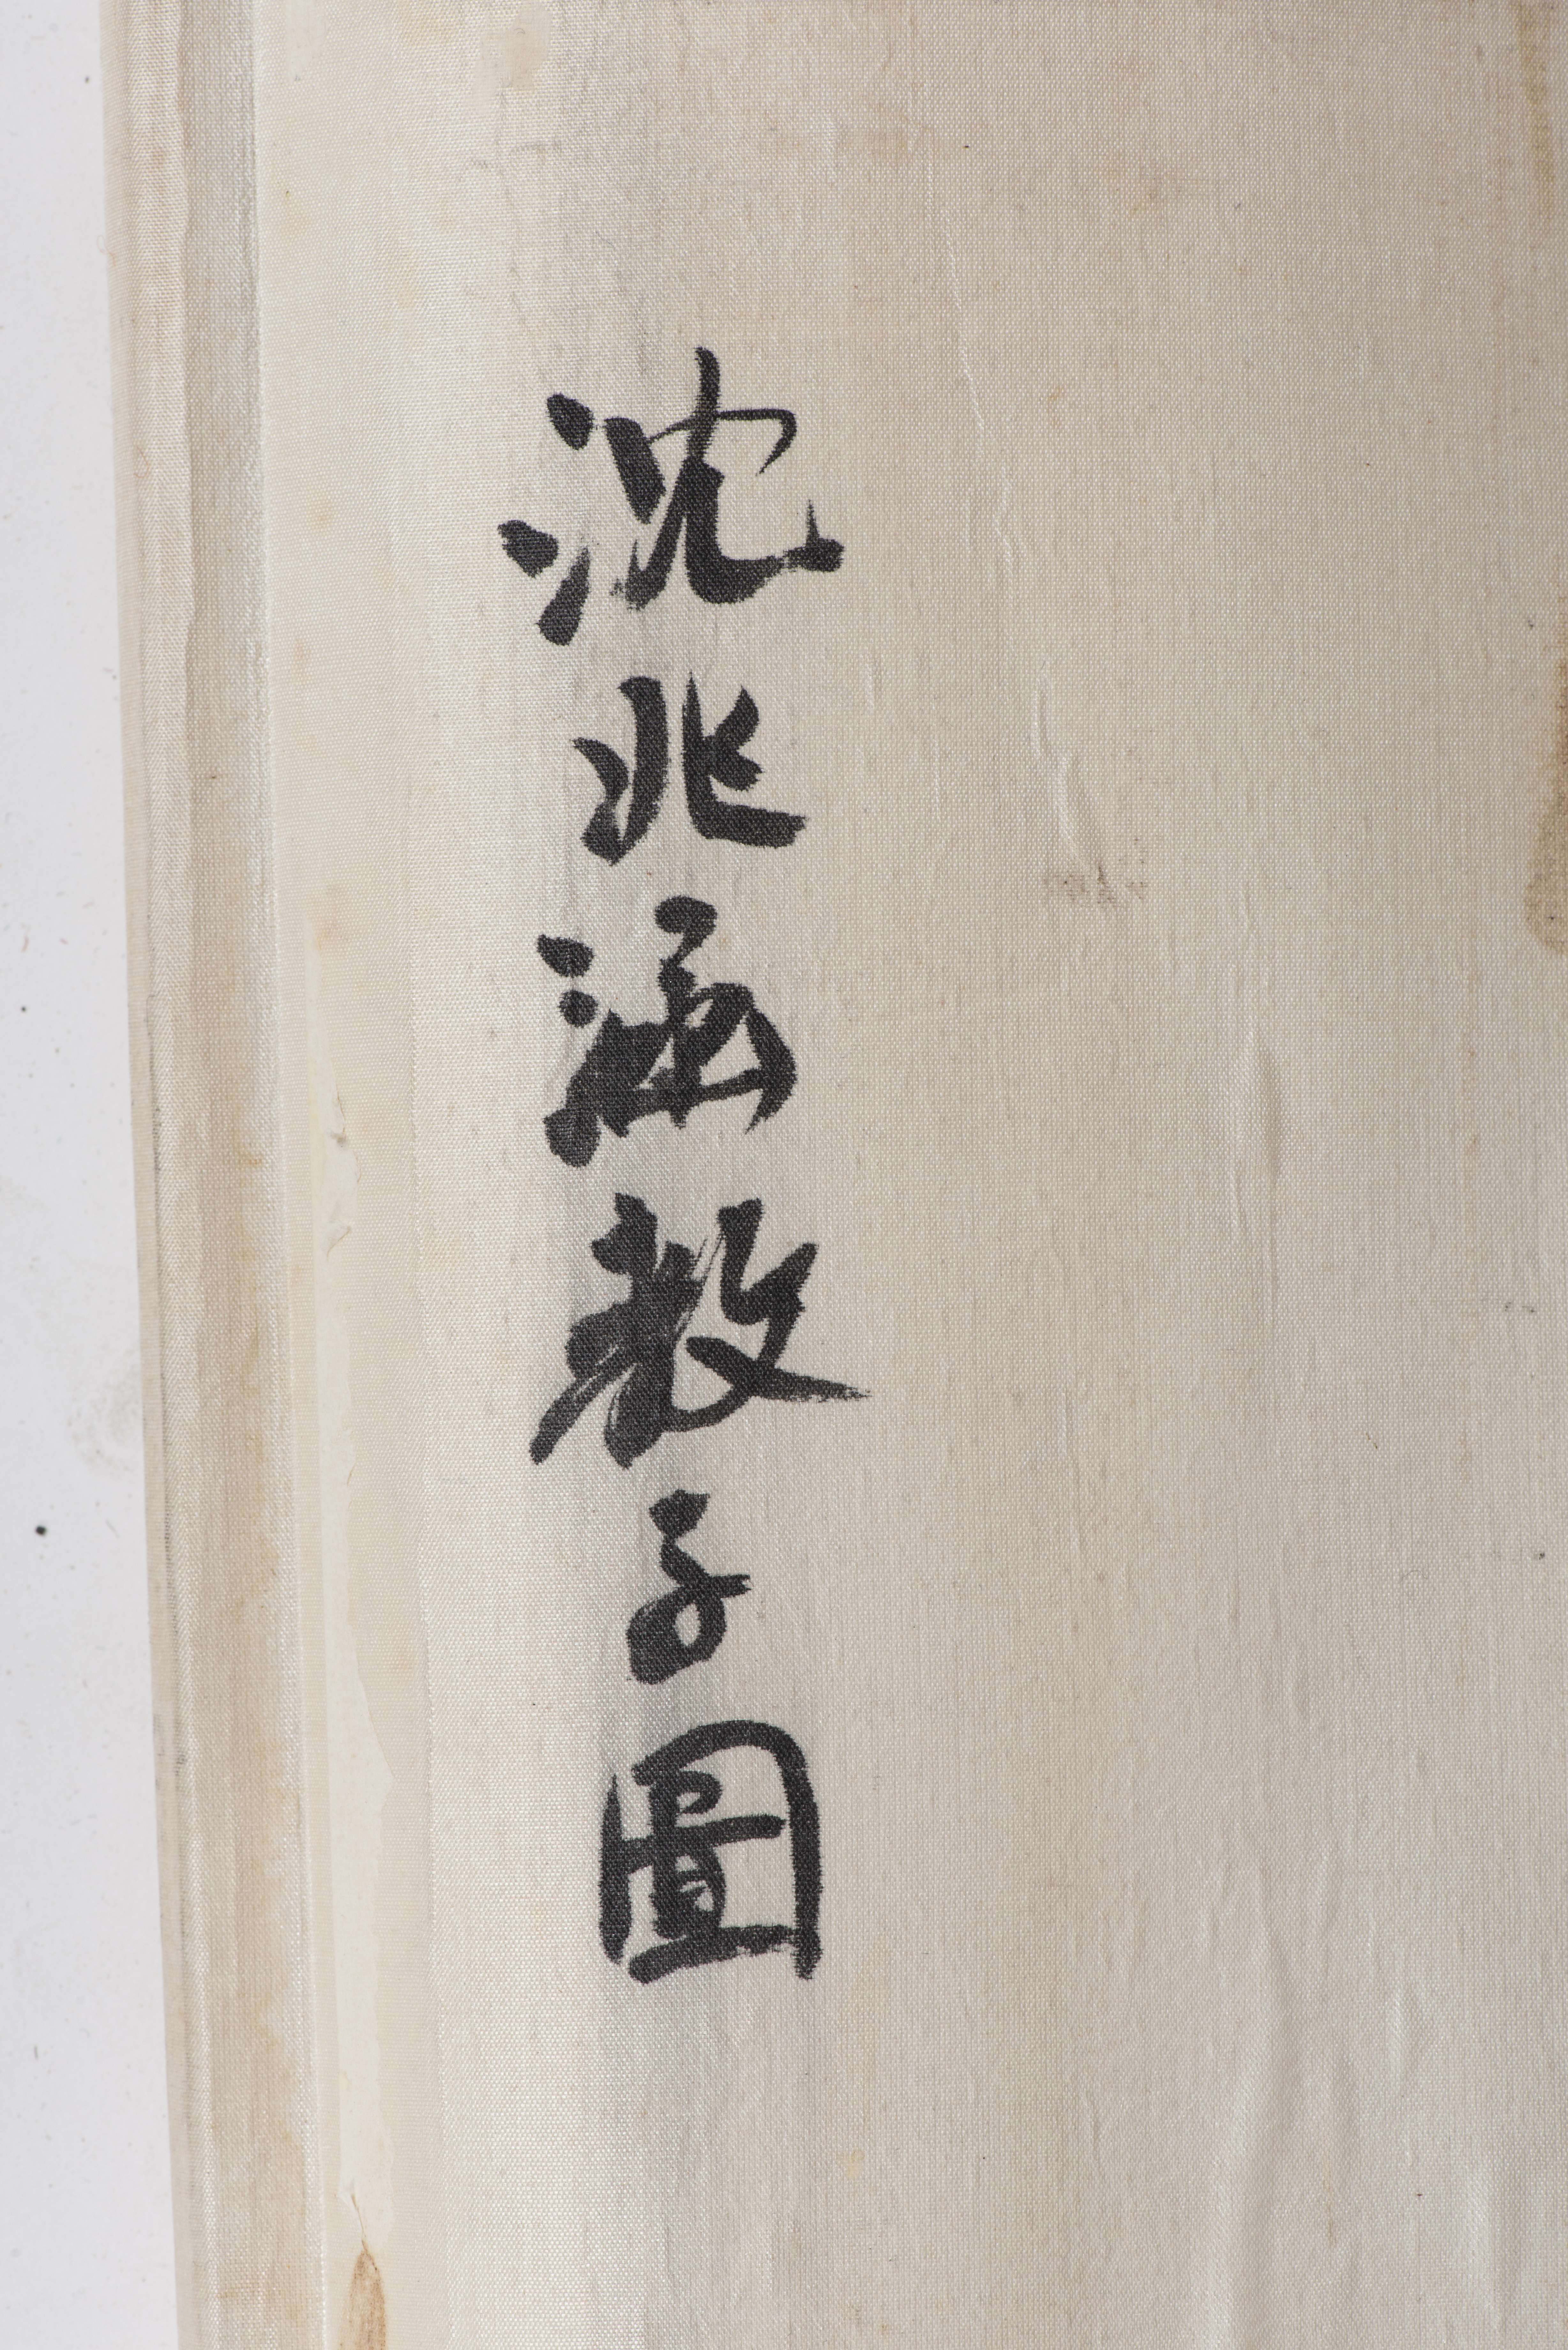 沈兆涵教子圖